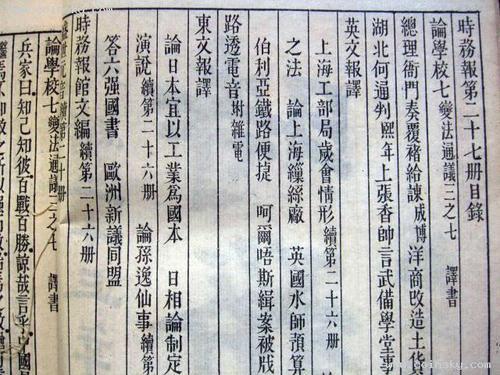 時務報第二十七册目錄
論學校七 變法通議三之七 譯書
總理衙門奏覆褚給諫成博洋商改造土貨
湖北何通判熙年上張香帥言武備學堂事
英文報譯
上海工部局歲會情形 續第二十六册
之法 論上海繅絲廠 英國水師預算
伯利亞鐵路便捷 呵爾唔斯緝案被戕
路透電音 附雜電
東文報譯
論日本宜以工業爲國本 日相論制定
演說 續第二十六册 論孫逸仙事 續第
答六強國書 歐洲新議同盟
時務報館文編 續第二十六册
論學校七 變法通議三之七 譯書
兵家曰知己知彼百戰百勝諒哉言乎中國
www.coinsky.com